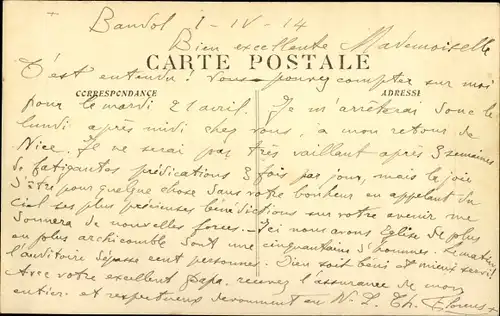 Bandol 1-IV-14
Bien excellente Mademoiselle
CARTE POSTALE
C'est entendu! Vous pouvez compter sur moi
CORRESPONDANCE ADRESSE
pour le mardi 21 avril. Je m'arrêterai donc le
lundi après midi chez vous, à mon retour de
Nice. Je ne serai pas très vaillant après 3 semaines
de fatigantes prédications 3 fois par jour, mais la joie
d'être pour quelque chose dans votre bonheur en appelant du
Ciel ses plus précieuses bénédictions sur votre avenir me
donnera de nouvelles forces. - Ici nous avons Eglise de plus
en plus archicomble. Sont une cinquantaine d'hommes. Le matin
l'auditoire dépasse cent personnes. Dieu soit béni et mieux servi
Avec votre excellent papa, recevez l'assurance de mon
entier et respectueux dévouement en N. S. Th.